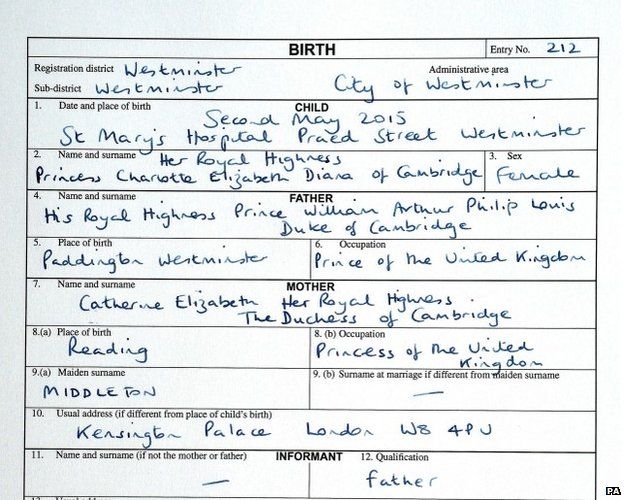 BIRTH Entry No. 212
Registration district Westminster Administrative area
Sub-district Westminster City of Westminster
1. Date and place of birth CHILD
Second May 2015
St Mary's Hospital Praed Street Westminster
2. Name and surname Her Royal Highness 3. Sex
Princess Charlotte Elizabeth Diana of Cambridge Female
4. Name and surname FATHER
His Royal Highness Prince William Arthur Philip Louis
Duke of Cambridge
5. Place of birth 6. Occupation
Paddington Westminster Prince of the United Kingdom
7. Name and surname MOTHER
Catherine Elizabeth Her Royal Highness
The Duchess of Cambridge
8.(a) Place of birth 8. (b) Occupation
Reading Princess of the United
Kingdom
9.(a) Maiden surname 9. (b) Surname at marriage if different from maiden surname
MIDDLETON —
10. Usual address (if different from place of child's birth)
Kensington Palace London W8 4PU
11. Name and surname (if not the mother or father) INFORMANT 12. Qualification
— Father
PA